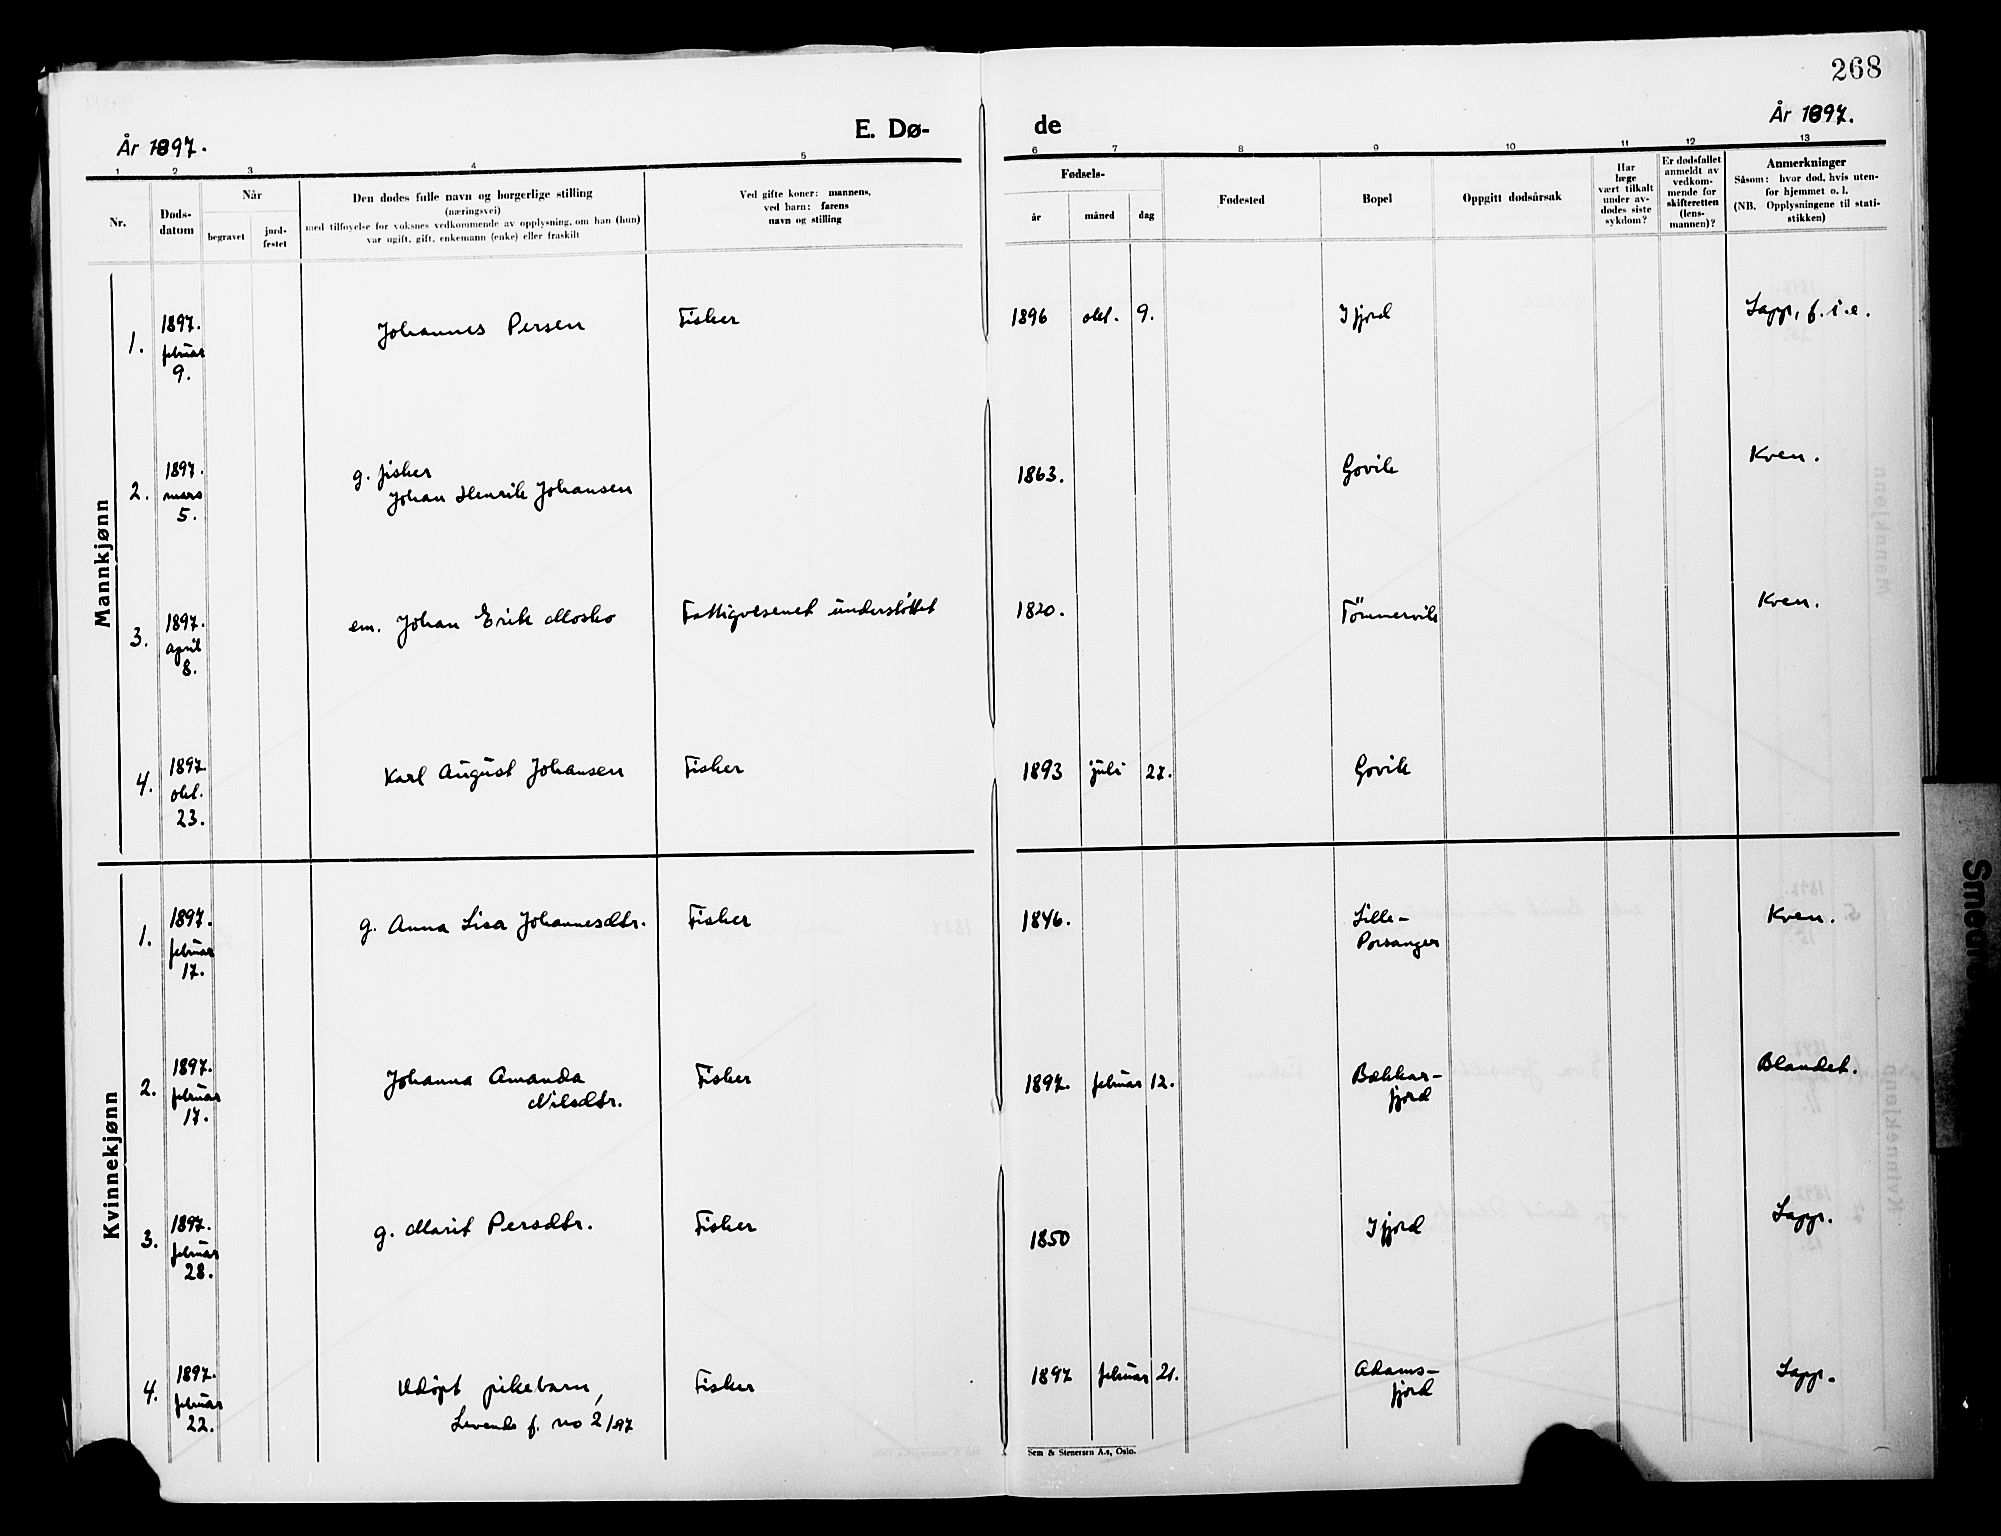 268
År 1897.
E. Dø-
de
År 1897.
1 2 3 4 5 6 7 8 9 10 11 12 13
Nr.
Døds-
datum
Når
begravet
jord-
festet
Den dødes fulle navn og borgerlige stilling
(næringsvei)
med tilføyelse for voksnes vedkommende av opplysning, om han (hun)
var ugift, gift, enkemann (enke) eller fraskilt
Ved gifte koner: mannens,
ved barn: farens
navn og stilling
Fødsels-
år
måned
dag
Fødested
Bopel
Oppgitt dødsårsak
Har
læge
vært tilkalt
under av-
dødes siste
sykdom?
Er dødsfallet
anmeldt av
vedkom-
mende for
skifteretten
(lens-
mannen)?
Anmerkninger
Såsom: hvor død, hvis uten-
for hjemmet o. l.
(NB. Opplysningene til stati-
stikken)
Mannkjønn
1.
1897.
februar
9.
Johannes Persen
Fisher
1896 okt. 9.
Ifjord
Lapp, f. i. e.
2.
1897.
mars
5.
g. fisker
Johan Henrik Johansen
1863.
Govik
Kven.
3.
1897.
april
8.
em. Johan Erik Mosko
Fattigvesenet understøttet
1820.
Tömmervik
Kven.
4.
1897
okt.
23.
Karl August Johansen
Fisker
1893 juli 27.
Govik
Kvinnekjønn
1.
1897.
februar
17.
g. Anna Lisa Johannesdtr.
Fisker
1846.
Lille-
Porsanger
Kven.
2.
1897.
februar
17.
Johanna Amanda
Nilsdtr.
Fisker
1897. februar 12.
Bekkar-
fjord
Blandet.
3.
1897.
februar
28.
g. Marit Persdtr.
Fisker
1850
Ifjord
Lapp.
4.
1897.
februar
22.
Udöpt pikebarn,
Levende f. no 2/97
Fisker
1897 februar 21.
Adams-
fjord
Lapp.
Sem & Stenersen A.s, Oslo.